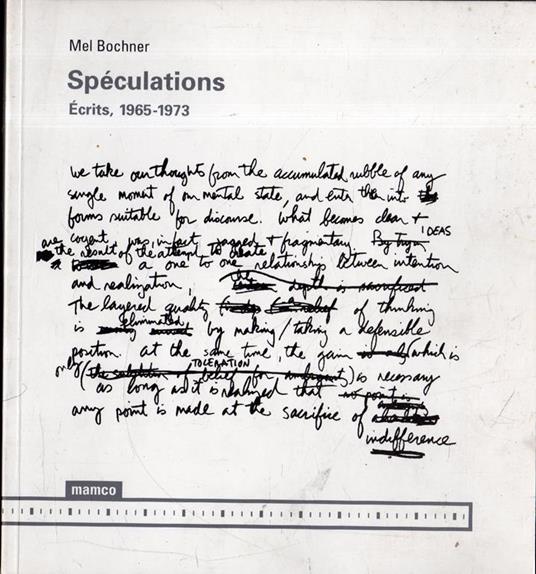 Mel Bochner
Spéculations
Écrits, 1965-1973
We take our thoughts from the accumulated rubble of any
single moment of our mental state, and enter them into the
forms suitable for discourse. What becomes clear +
cogent was in fact jagged + fragmentary. IDEAS
are the result of the attempt to create
a one to one relationship between intention
and realization, the depth is sacrificed
The layered quality of thinking
is eliminated by making/taking a defensible
position. At the same time, the gain (which is
only TOLERATION belief for ) is necessary
as long as it is realized that no point is
any point is made at the sacrifice of
indifference
mamco